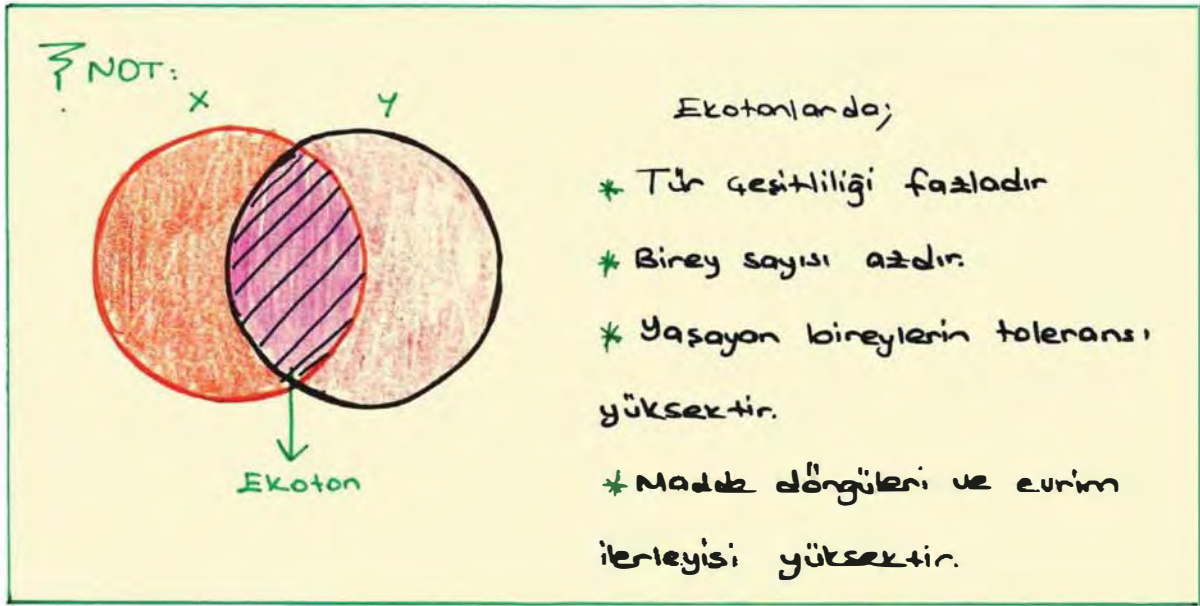 NOT:
X
Y
Ekoton
Ekotonlarda;
* Tür çeşitliliği fazladır
* Birey sayısı azdır.
* Yaşayan bireylerin toleransı
yüksektir.
* Madde döngüleri ve evrim
ilerleyişi yüksektir.